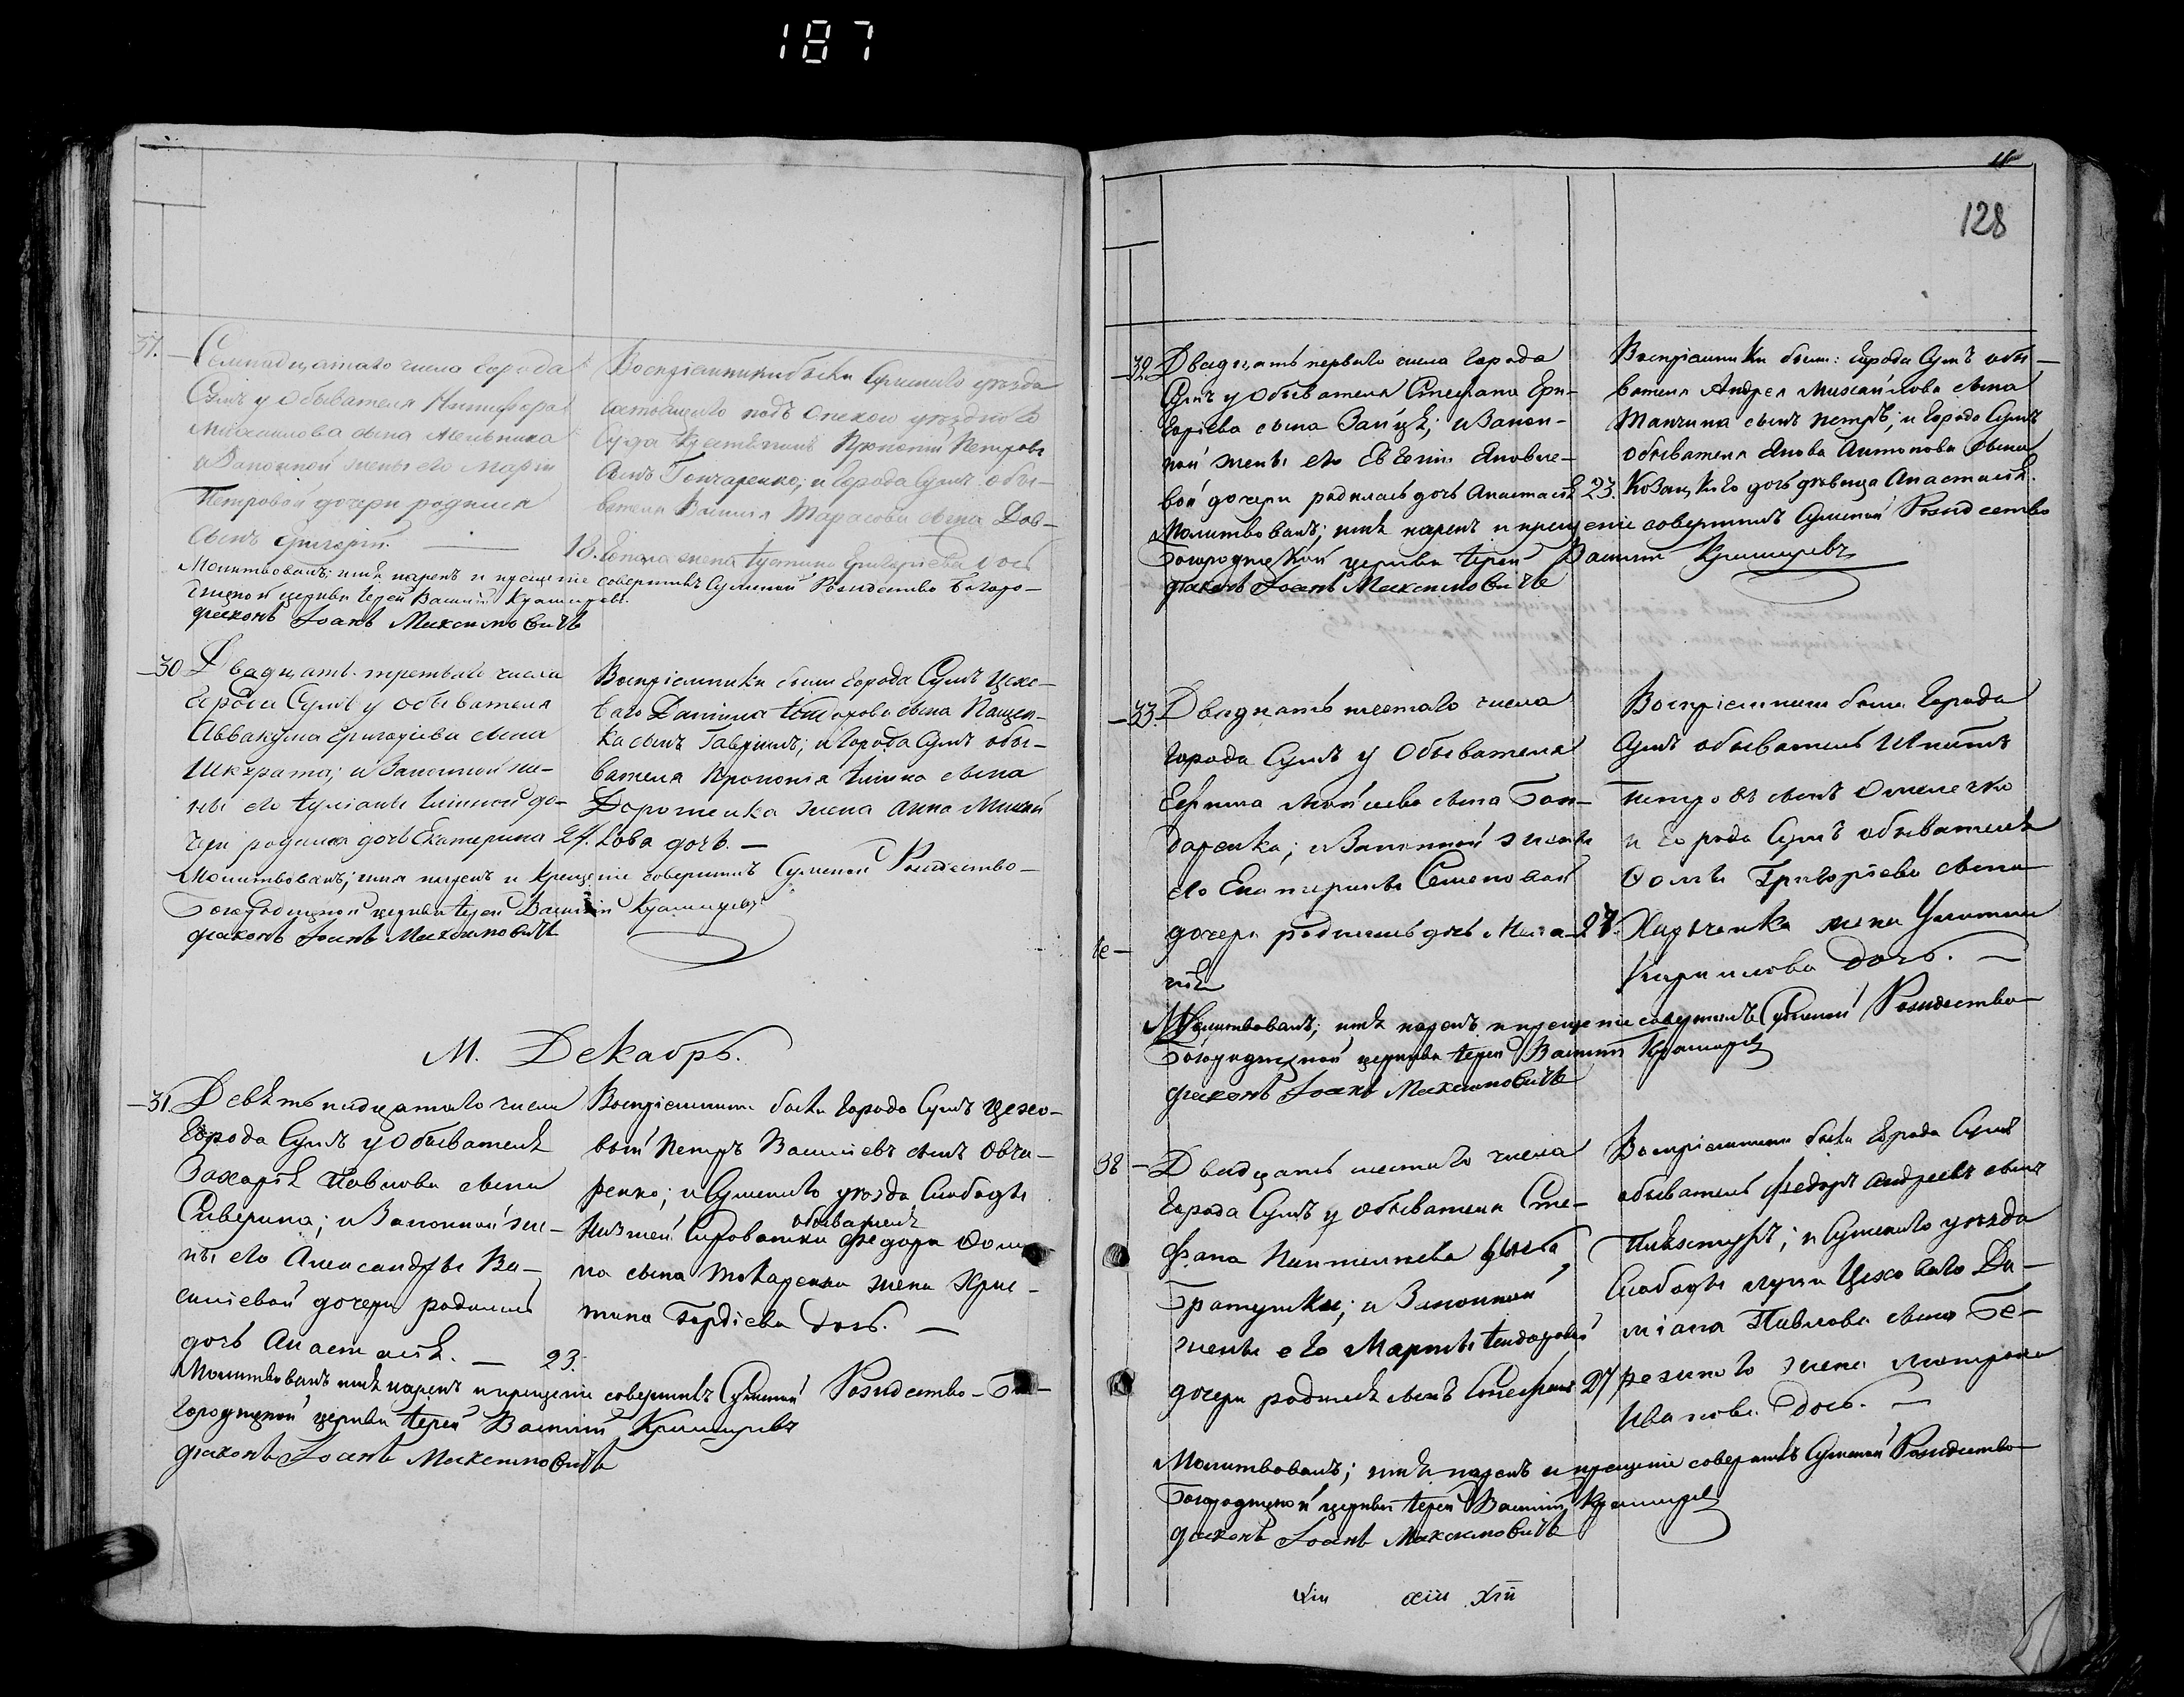 187
128
31. Семнадцатаго числа города
Сумъ у обывателя Никифора
Михаилова сына Мельника
и Законной жены его Маріи
Петровой дочери родился
сынъ Григорій. — 18.
Воспріемники были Сумскаго уѣзда
состоящего подъ опекою уѣзднаго
Суда Крестянинъ Прокопій Петровъ
сынъ Гончаренко; и города Сумъ обы-
вателя Василія Тарасова сына Дов-
жена Іустина Григоріева дочь
Молитвовалъ; имя нарекъ и крещеніе совершилъ Сумской Рождество Богоро-
дицкой церкви Іерей Василій Крашеревъ.
діаконъ Іоанъ Максимовичъ
30 Двадцать третьяго числа
города Сумъ у обывателя
Аввакума Григоріева сына
Шкурата; и Законной же-
ны его Іуліаны дo-
чери родилась дочь Екатерина 24.
Воспріемники были города Сумъ цехо-
ваго Даніила Іеодорова сына Пащен-
ка сынъ Гавріилъ; и города Сумъ обы-
вателя Прокопія Іліина сына
Дорошенка жена Анна Михай
лова дочь. —
Молитвовалъ; имя нарекъ и крещеніе совершилъ Сумской Рождество-
Богородицкой церкви Іерей Василій Крашеревъ
діаконъ Іоанъ Максимовичъ
М. Декабрь.
31 Девятьнадцатаго числа
города Сумъ у обывателя
Захарія Павлова сына
Сиверина; и Законной же-
ны его Александры Ва-
силіевой дочери родилась
дочь Анастасія. — 23.
Воспріемники были города Сумъ цехо-
вый Петръ Василіевъ сынъ Овча-
ренко; и Сумскаго уѣзда Слободы
обывателя
Нижней Сироватки Федора Фоми
на сына Токаренка жена Хрис-
тина Гордіева дочь. —
Молитвовалъ имя нарекъ и крещеніе совершилъ Сумской Рождество-Бо-
городицкой церкви Іерей Василій Крашеревъ
діаконъ Іоанъ Максимовичъ
32 Двадцать перваго числа города
Сумъ у обывателя Стефана Гри-
горіева сына Зайця; и Закон-
ной жены его Евгеніи Яковле-
вой дочери родилась дочь Анастасія 23.
Воспріемники были: города Сумъ обы-
вателя Андрея Михайлова сына
Танчина сынъ Петръ; и города Сумъ
обывателя Якова Антонова сына
Козацкаго дочь дѣвица Анастасія.
Молитвовалъ; имя нарекъ и крещеніе совершилъ Сумской Рождество
Богородицкой церкви Іерей Василій Крашеревъ
діаконъ Іоанъ Максимовичъ
33 Двадцать шестаго числа
города Сумъ у обывателя
Мойсіева сына Бон-
даренка; и Законной жены
его Екатерины Семеновой
дочери родилась дочь Мела- 27.
нія
Воспріемники были города
Сумъ обыватель Игнатъ
Петровъ сынъ Омелечко
и города Сумъ обывателя
Фомы Григоріева сына
жена Уліанна
Кирилова дочь. —
Молитвовалъ; имя нарекъ и крещеніе совершилъ Сумской Рождество-
Богородицкой церкви Іерей Василій Крашеревъ
діаконъ Іоанъ Максимовичъ
38 — Двадцать шестаго числа
города Сумъ у обывателя Сте-
фана Пантелиева сына
Братушки; и Законной
жены его Марфы Іеодоровой
дочери родился сынъ Стефанъ 27
Воспріемники были города Сумъ
обыватель Федоръ Андреевъ сынъ
и Сумскаго уѣзда
Слободы Луки Цеховаго Да-
міана Павлова сына Бе-
резнаго жена Матрона
Иванова дочь. —
Молитвовалъ; имя нарекъ и крещеніе совершилъ Сумской Рождество-
Богородицкой церкви Іерей Василій Крашеревъ
діаконъ Іоанъ Максимовичъ